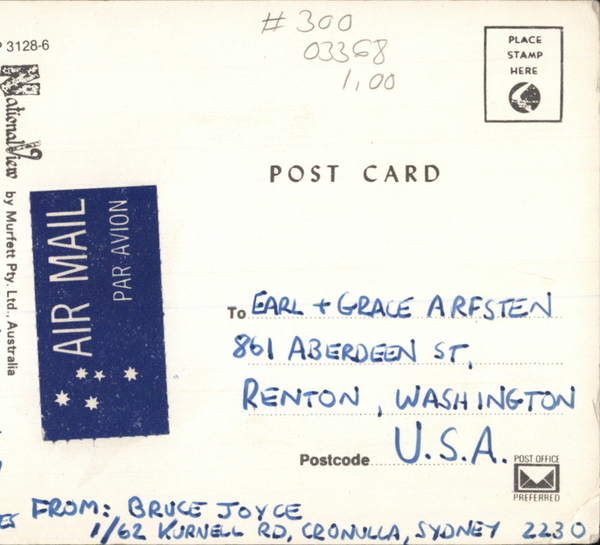 # 300
03368
1,00
P 3128-6
PLACE
STAMP
HERE
NationalView
by Murfett Pty. Ltd., Australia
POST CARD
AIR MAIL
PAR AVION
To EARL + GRACE ARFSTEN
861 ABERDEEN ST,
RENTON, WASHINGTON
Postcode U.S.A.
POST OFFICE
PREFERRED
FROM: BRUCE JOYCE
1/62 KURNELL RD, CRONULLA, SYDNEY 2230